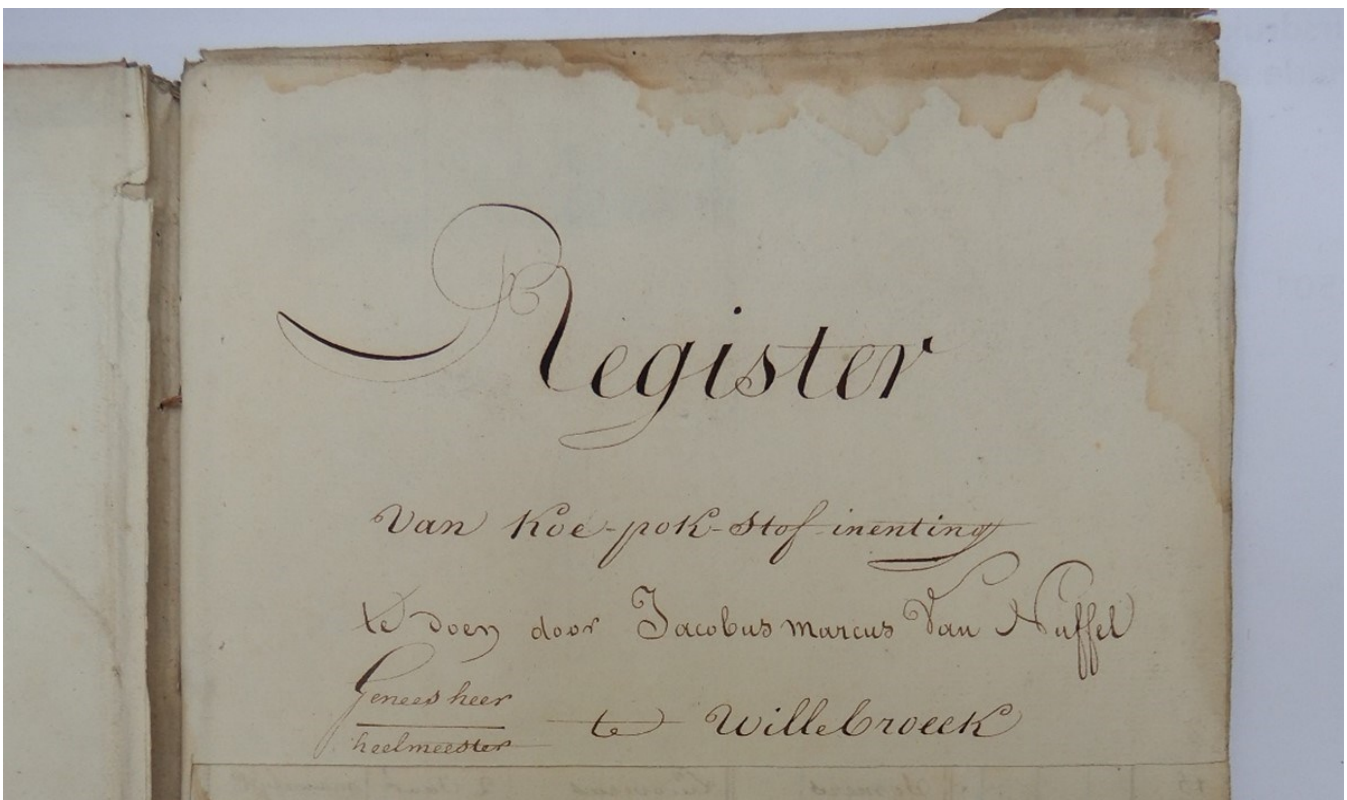 Register
Van Koe-pok-stof inenting
te doen door Jacobus marcus Van Nuffel
Genees heer
heelmeester te Willebroeck